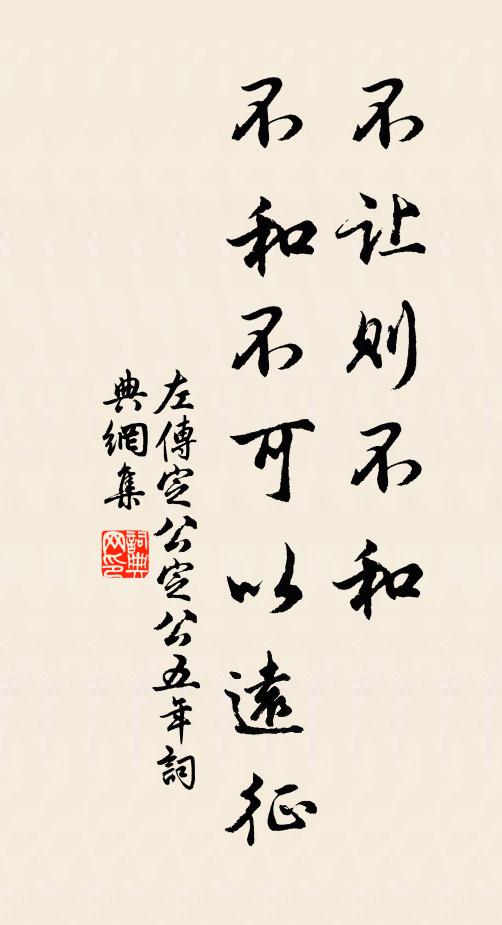 不让则不和
不和不可以遠征
左傳定公定公五年詞
典網集
詞典
网印